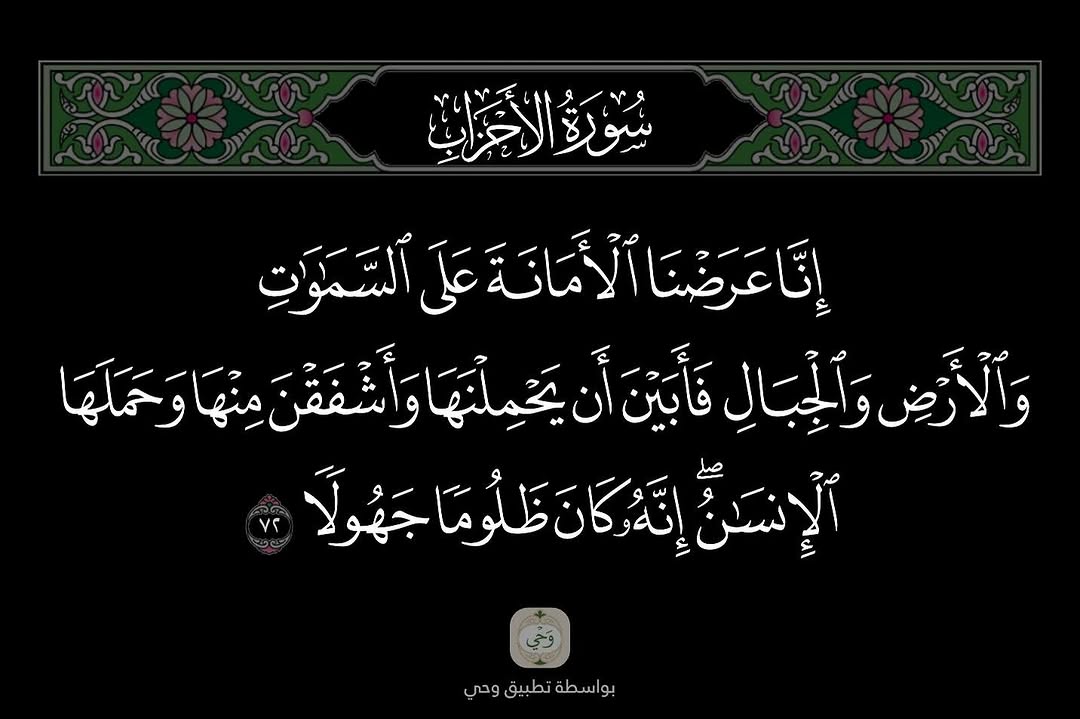 سُورَةُ الأَحْزَابِ
إِنَّا عَرَضْنَا ٱلْأَمَانَةَ عَلَى ٱلسَّمَٰوَٰتِ
وَٱلْأَرْضِ وَٱلْجِبَالِ فَأَبَيْنَ أَن يَحْمِلْنَهَا وَأَشْفَقْنَ مِنْهَا وَحَمَلَهَا
ٱلْإِنسَٰنُۖ إِنَّهُۥ كَانَ ظَلُومًا جَهُولًا ٧٢
وَحْي
بواسطة تطبيق وحي